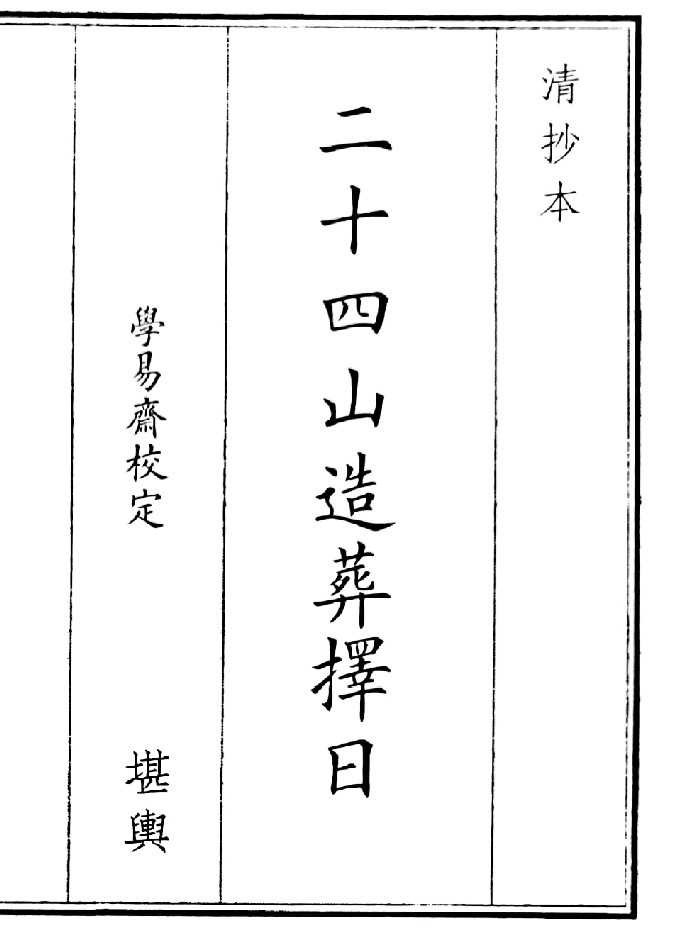 清抄本
二十四山造葬擇日
學易齋校定
堪輿